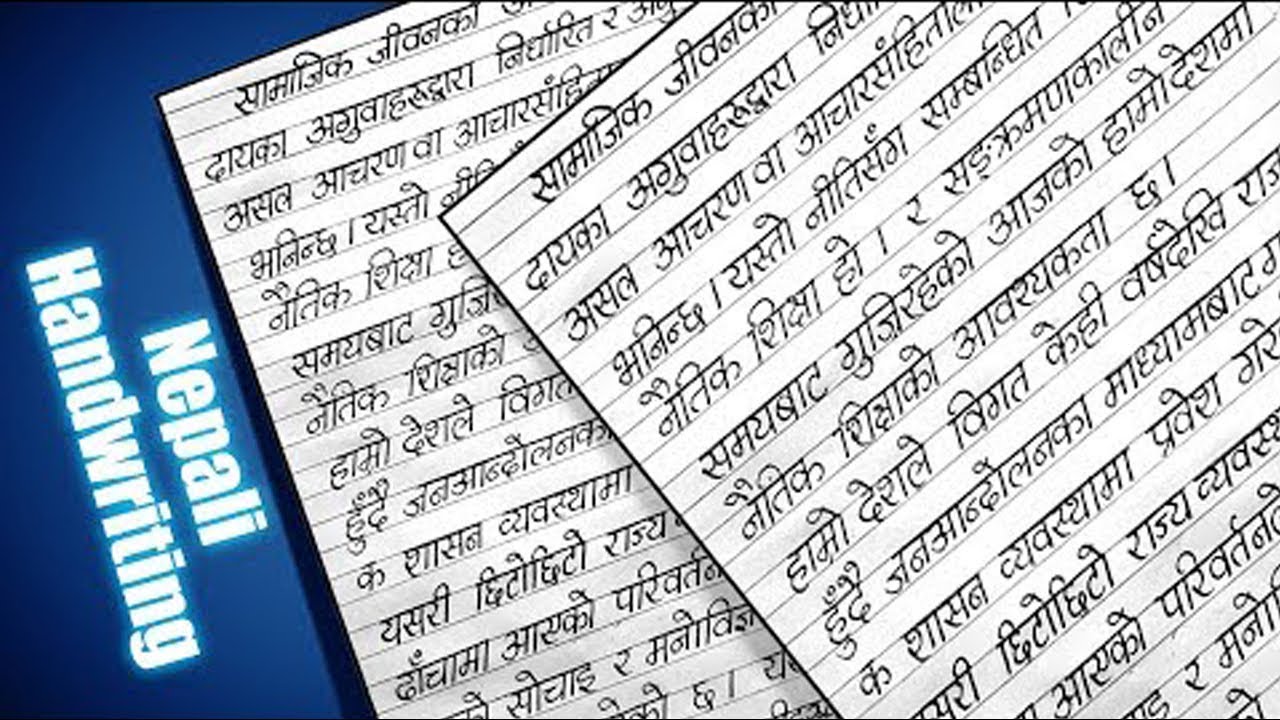 Nepali
Handwriting
सामाजिक जीवनका
दायका अगुवाहरूद्वारा निर्धारित र
असल आचरण वा आचारसंहिता
भनिन्छ । यस्तो
नैतिक शिक्षा
समयबाट
नैतिक शिक्षाको
हाम्रो देशले विगत
हुँदै जनआन्दोलनका
क शासन व्यवस्थामा
यसरी छिटोछिटो राज्य
ढाँचामा आएको परिवर्तन
सोचाइ र मनोविज्ञ
को छ ।
सामाजिक जीवनका
दायका अगुवाहरूद्वारा
असल आचरण वा आचारसंहिता
भनिन्छ । यस्तो नीतिसँग सम्बन्धित
नैतिक शिक्षा हो । र सङ्क्रमणकालीन
समयबाट गुज्रिरहेको आजको हाम्रो देशमा
नैतिक शिक्षाको आवश्यकता छ ।
हाम्रो देशले विगत केही वर्षदेखि
हुँदै जनआन्दोलनका माध्यामबाट
क शासन व्यवस्थामा प्रवेश
यसरी छिटोछिटो राज्य व्यवस्
आएको परिवर्तन
र मनोवि